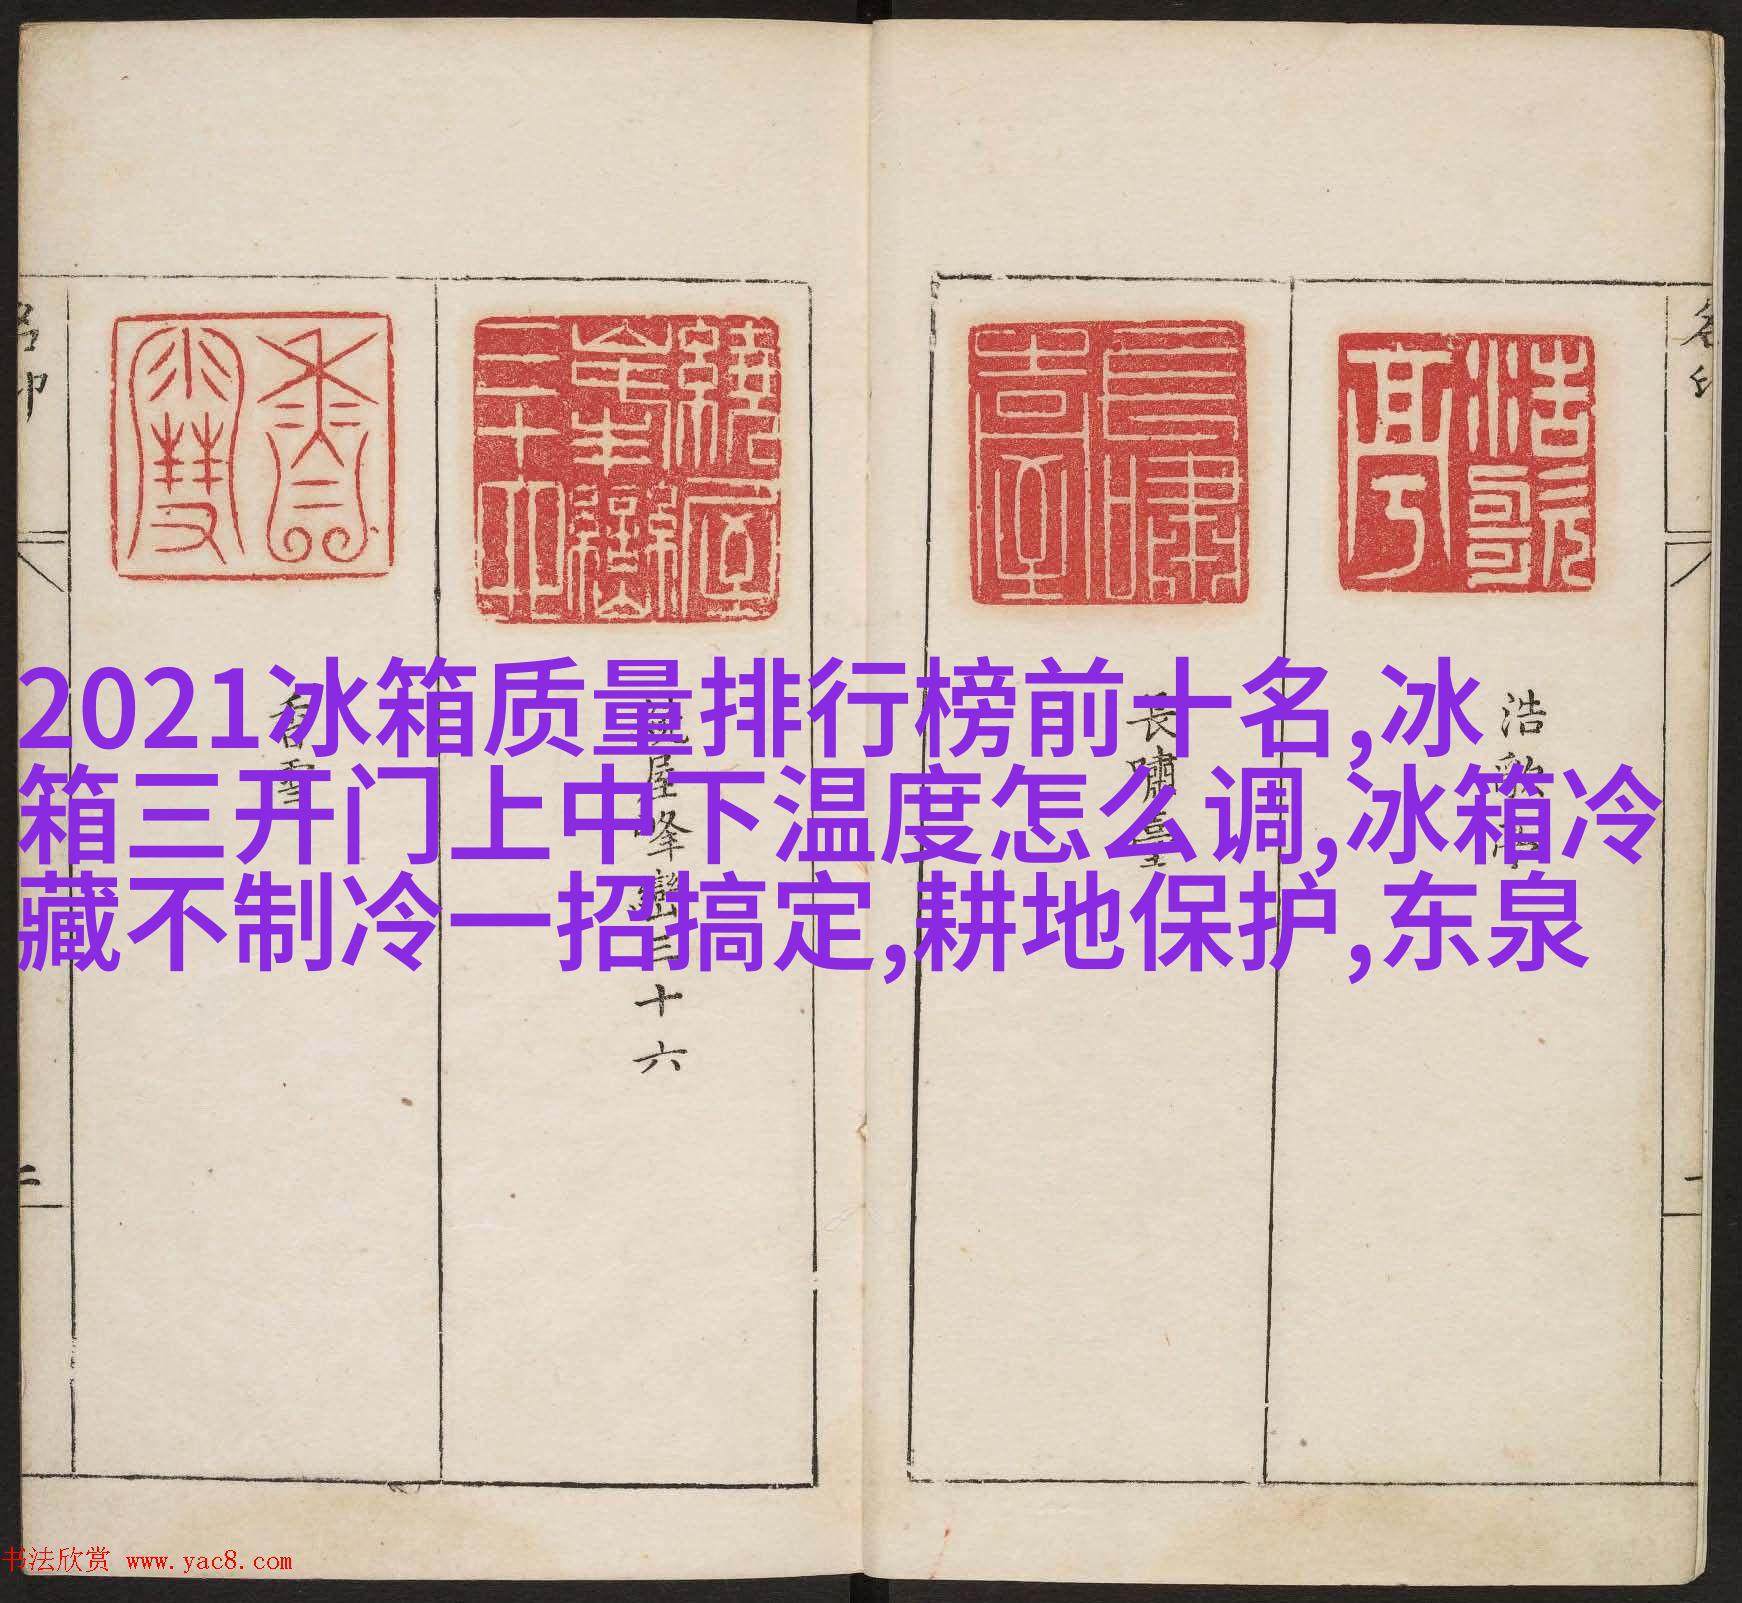 2021冰箱质量排行榜前十名,冰
箱三开门上中下温度怎么调,冰箱冷
藏不制冷一招搞定,耕地保护,东泉
浩歌亭
長嘯臺
繞屋峰巒三十六
香雪
书法欣赏 www.yac8.com